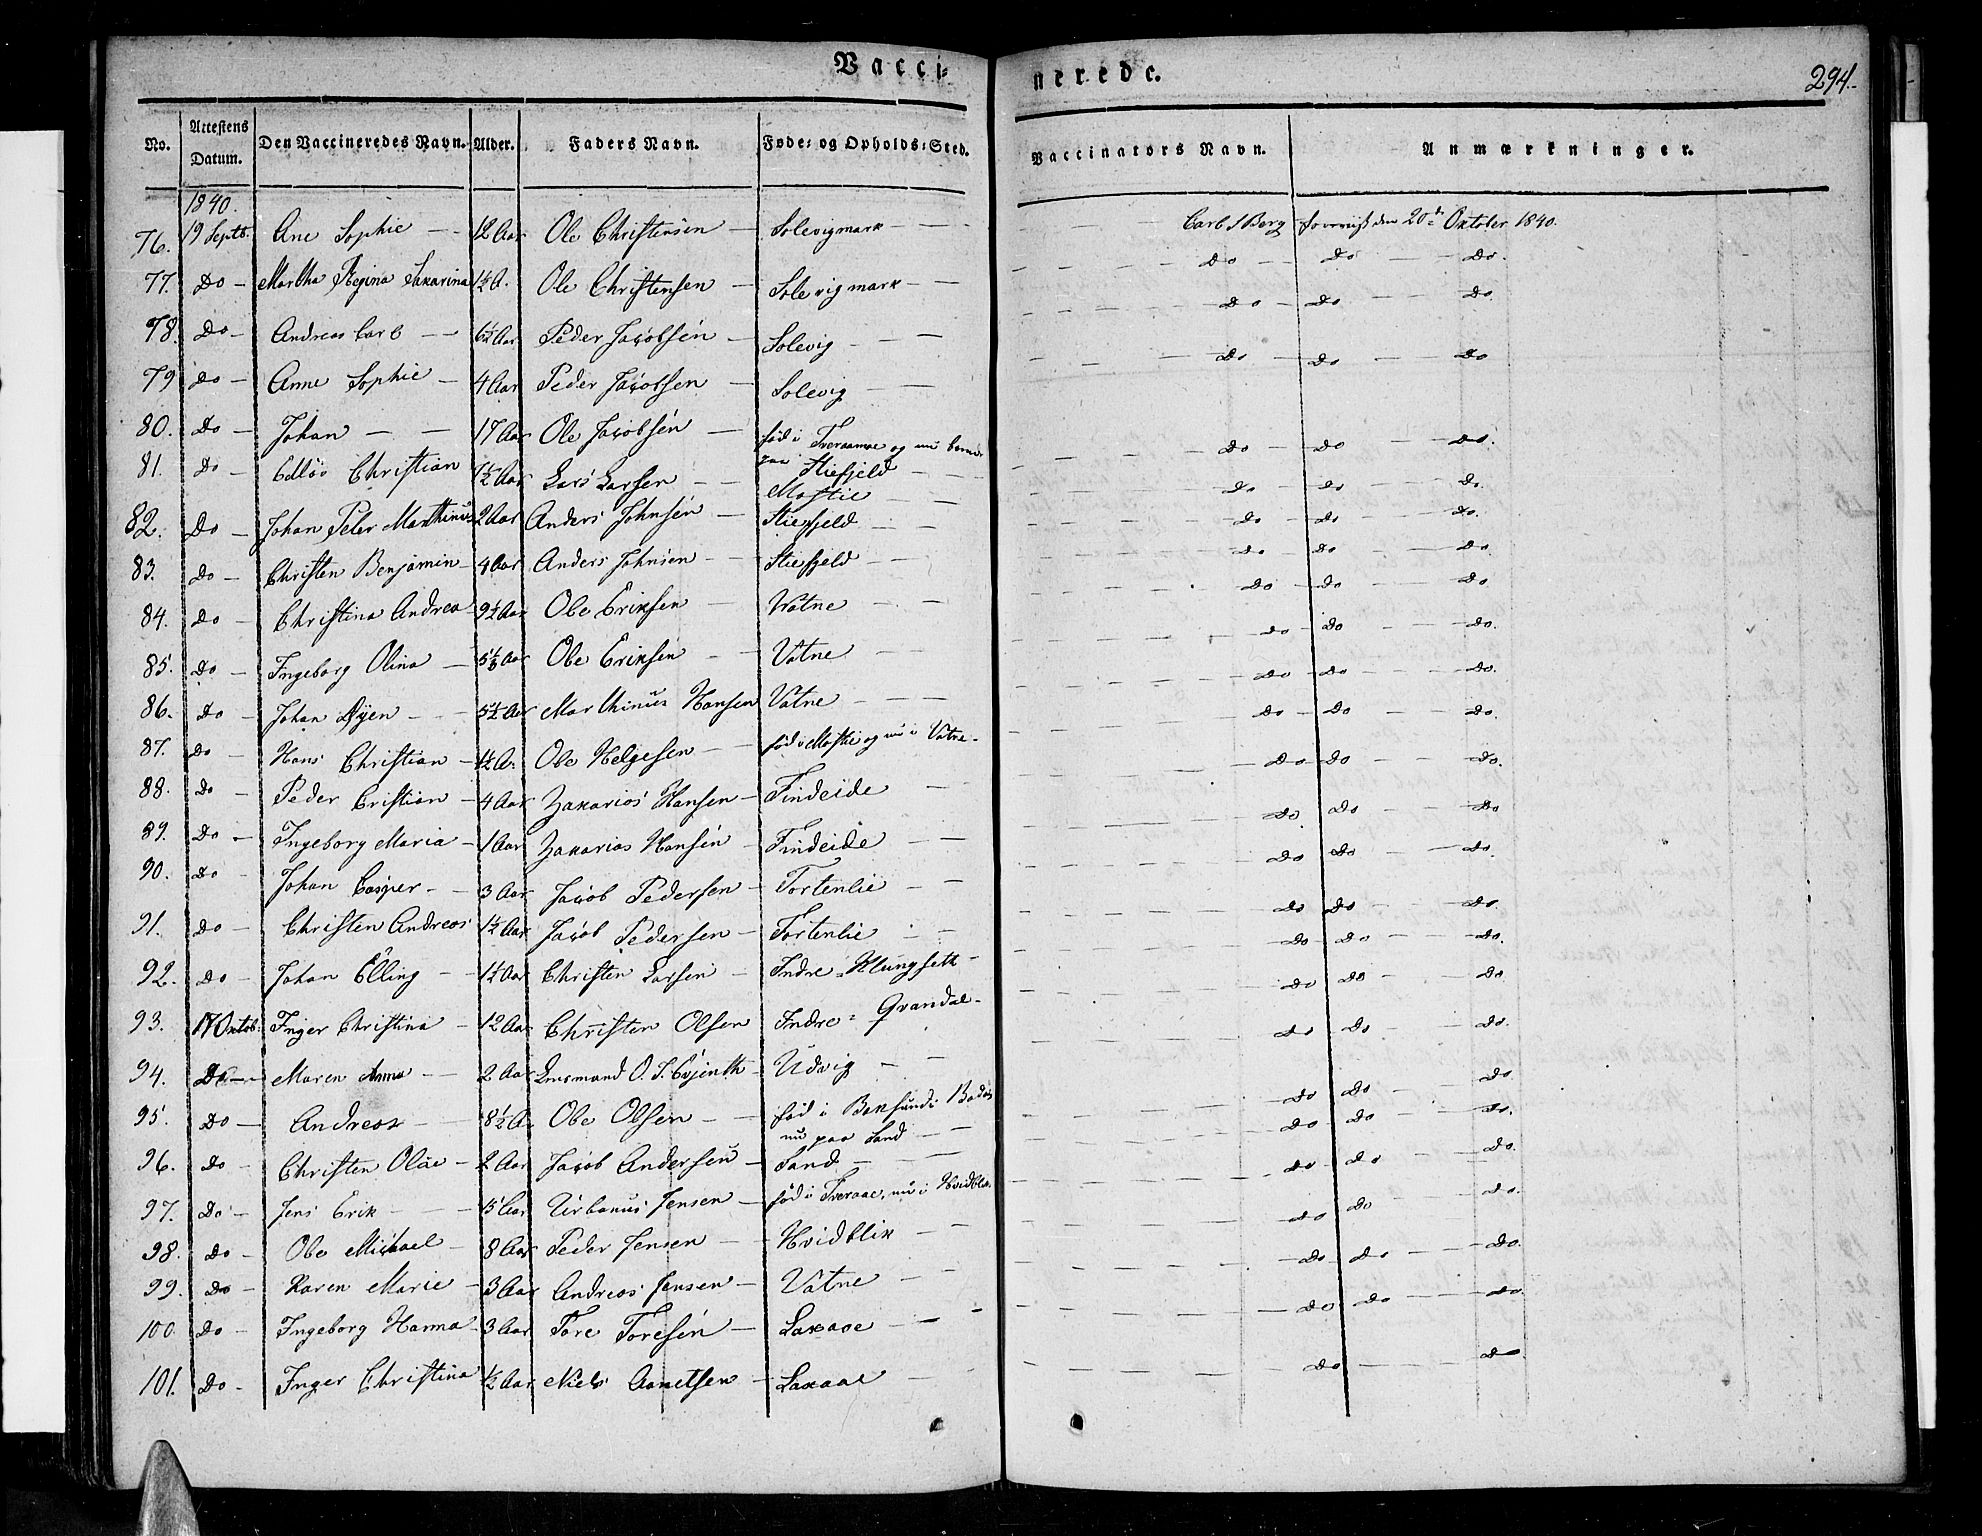 Vacci-
nerede.
294.
No. Attestens Datum. Den Vaccineredes Navn. Alder. Faders Navn. Føde- og Opholds-Sted. Vaccinators Navn. Anmærkninger.
1840.
76. 19 Septb. Ane Sophie 12 Aar Ole Christensen Solevigmark Carl S Berg foreviist den 20de Oktober 1840.
77. Do Martha Regina Sakarina 1½ A. Ole Christensen Solevigmark Do Do Do.
78. Do Andreas Carl 6½ Aar Peder Jacobsen Solevig Do Do Do
79 Do Anne Sophie 4 Aar Peder Jacobsen Solevig Do Do Do
80. Do Johan 17 Aar Ole Jacobsen fød i Tveraamoe og nu
paa Stiefjeld Do Do Do.
81. Do Christian 1½ Aar Lars Larsen Mostie Do Do Do.
82. Do Johan Peter Marthinus 2 Aar Anders Johnsen Stiefjeld Do Do Do.
83. Do Christen Benjamin 4 Aar Anders Johnsen Stiefjeld Do Do Do.
84. Do Christina Andrea 9½ Aar Ole Eriksen Vatne Do Do Do
85. Do Ingeborg Olina Aar Ole Eriksen Vatne Do Do Do.
86. Do Johan 5½ Aar Marthinus Hansen Vatne Do Do Do.
87. Do Hans Christian 1½ A. Ole Helgesen fød i Mostie og nu i Vatne Do Do Do.
88. Do Peder Cristian 4 Aar Zakarias Hansen Findeide Do Do Do.
89. Do Ingeborg Maria 1 Aar Zakarias Hansen Findeide Do Do Do
90. Do Johan Casper 3 Aar Jacob Pedersen Tortenlie Do Do Do.
91. Do Christen Andreas 1½ Aar Jacob Pedersen Tortenlie Do Do Do.
92. Do Johan Elling 1½ Aar Christen Larsen Indre Klungsett Do Do Do.
93. 17 Oktob. Inger Christina 12 Aar Christen Olsen Indre Grandal Do Do Do
94. Do Maren Anna 2 Aar Lensmand O. J. Udvig Do Do Do.
95. Do Andreas 8½ A. Ole Olsen fød i Boksund i Bodø
nu paa Sand Do Do Do.
96. Do Christen Olai 2 Aar Jacob Andersen Sand Do Do Do.
97. Do Jens Erik 5 Aar Urbanus Jensen fød i Tveraae, nu i Hvidblik Do Do Do.
98. Do Ole Michael 8 Aar Peder Jensen Hvidblik Do Do Do.
99. Do Karen Marie 3 Aar Andreas Jensen Vatne Do Do Do.
100. Do Ingeborg Hanna 3 Aar Tore Toresen Laxaae Do Do Do.
101. Do Inger Christina ½ Aar Niels Laxaae Do Do